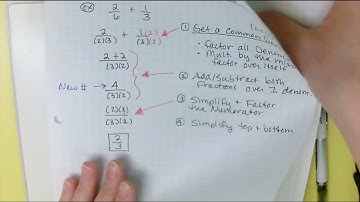 Ex 2/6 + 1/3
2/(2)(3) + 1(2)/(3)(2)
2+2/(3)(2)
New # → 4/(3)(2)
(2)(2)/(3)(2)
2/3
① Get a Common
• factor all Denom
• Mult by the
factor over itself
② Add/Subtract both
Fractions over 1 denom
③ Simplify + Factor
the Numerator
④ Simplify top + bottom